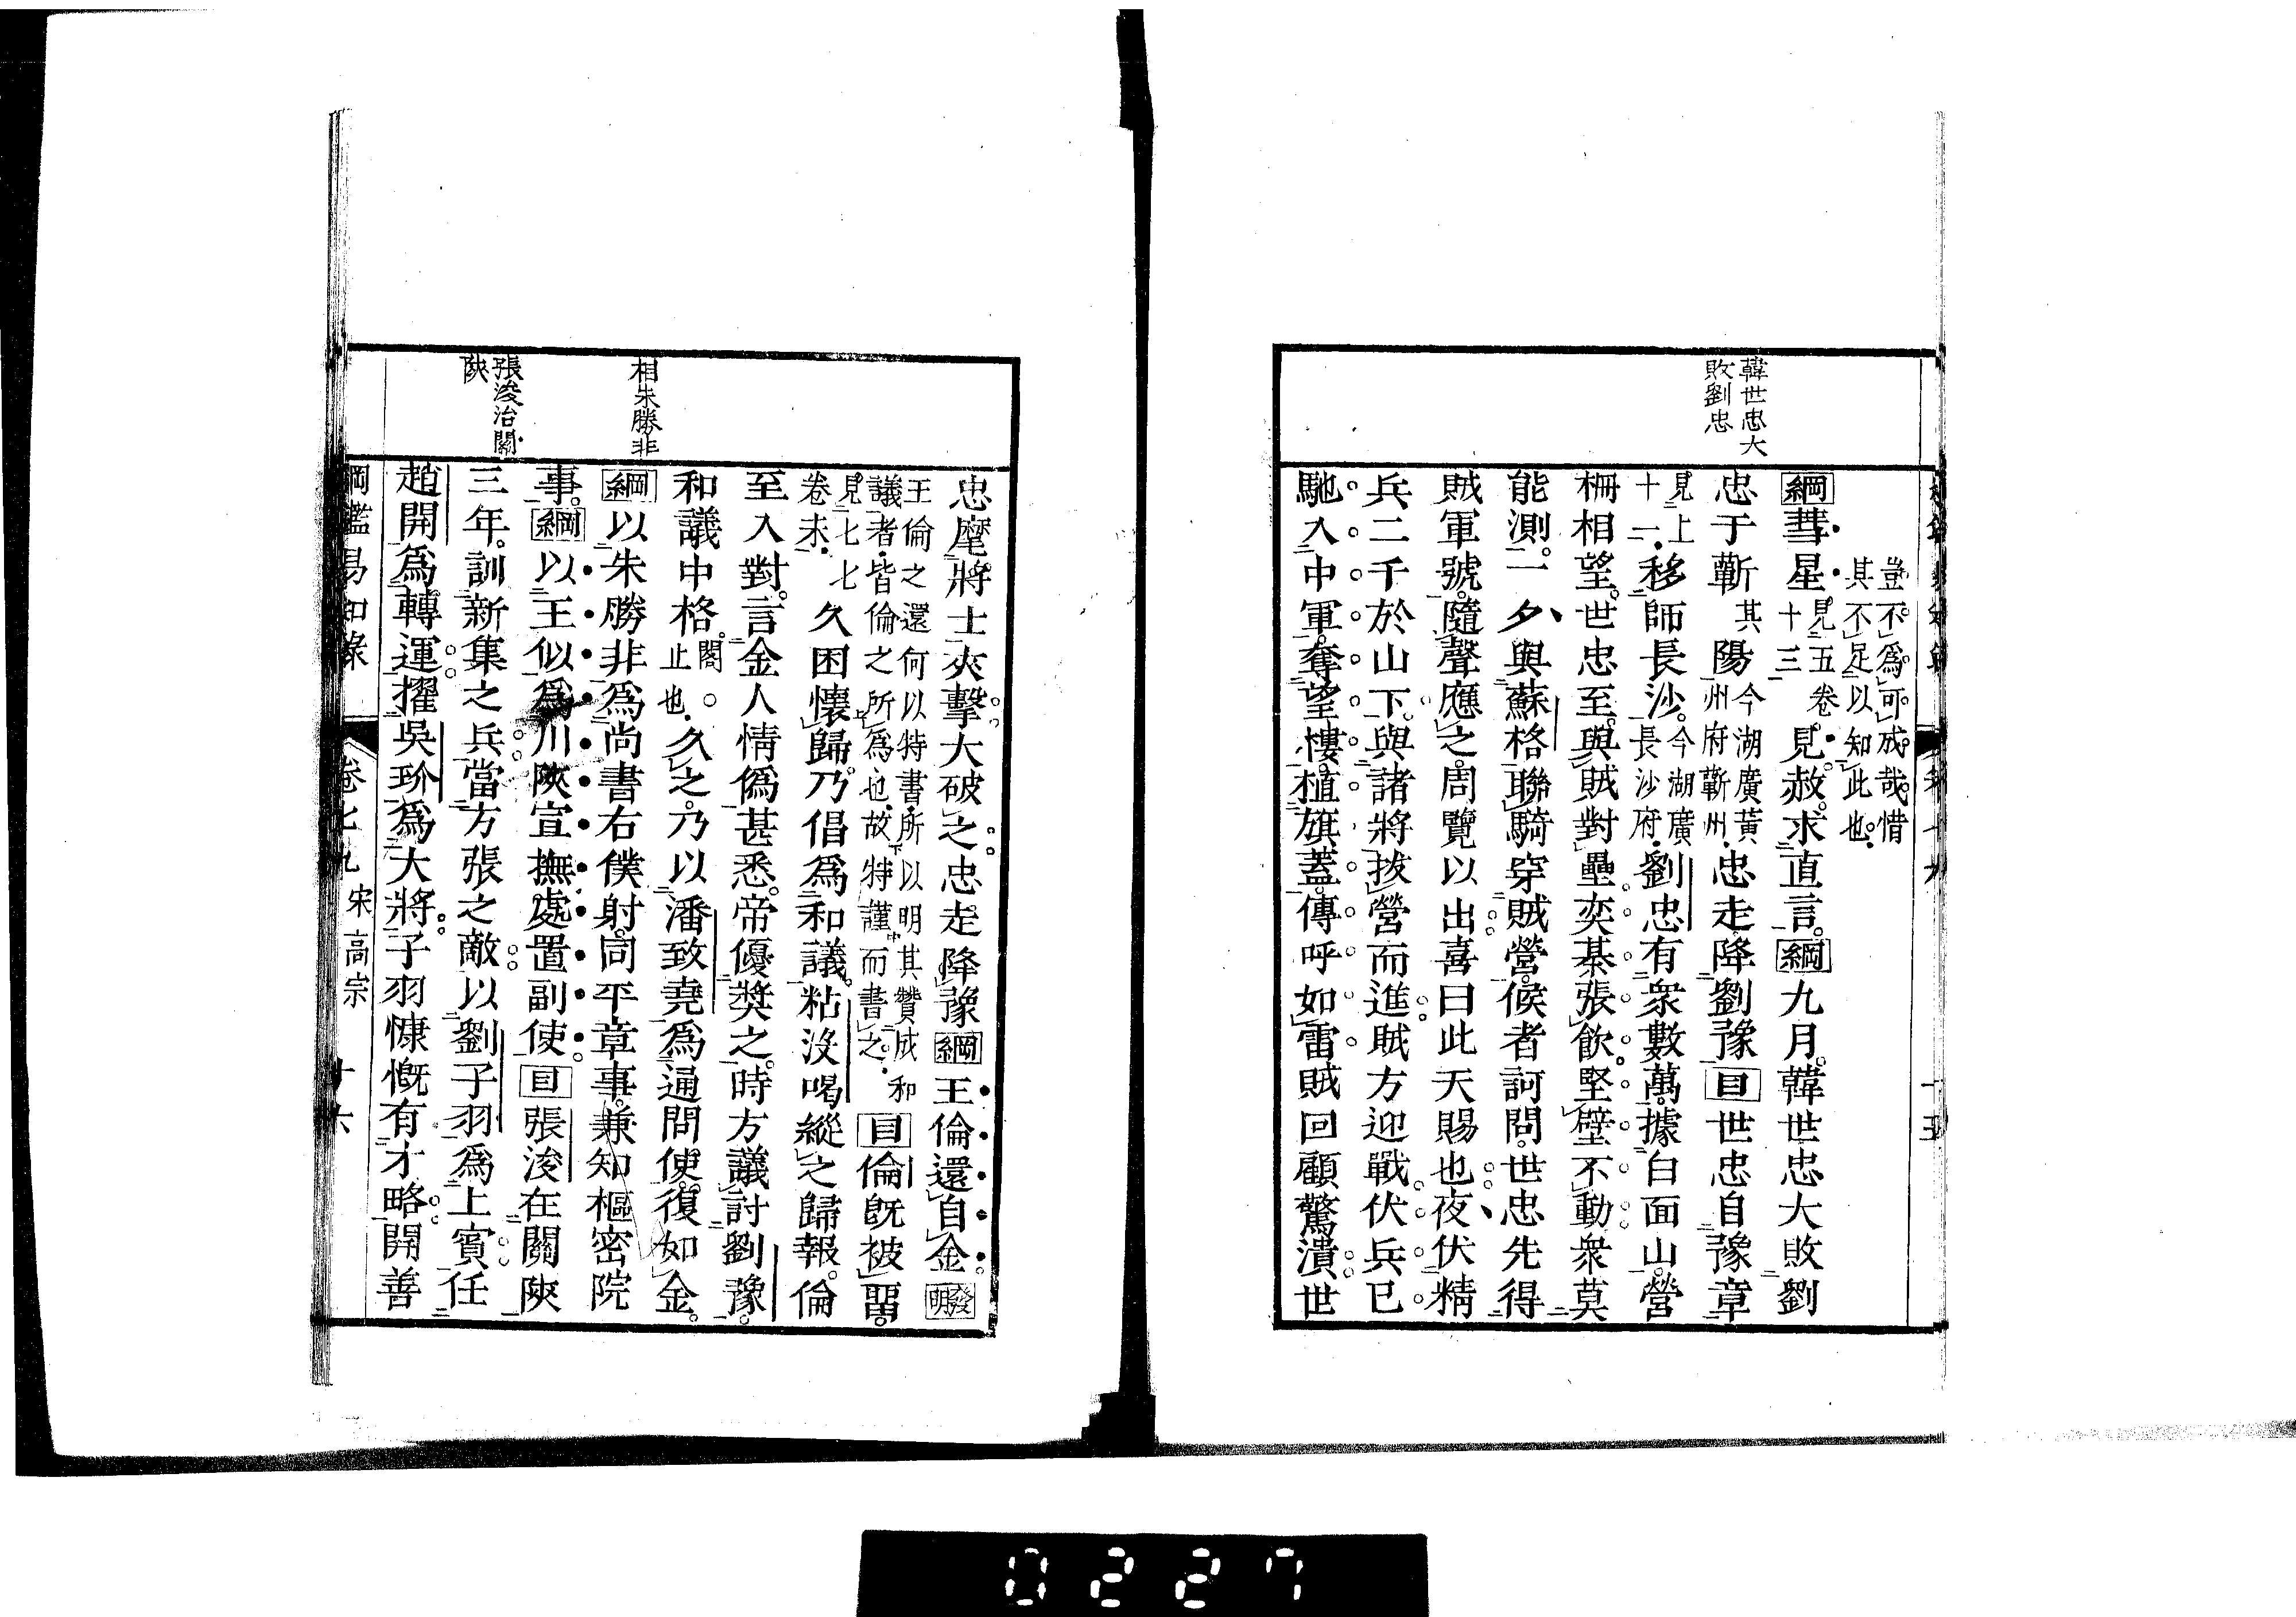 韓世忠大
敗劉忠
豈不爲可成哉惜
其不足以知此也
綱彗星見五卷十三見赦求直言綱九月韓世忠大敗劉
忠于蘄其陽今湖廣黃州府蘄州忠走降劉豫目世忠自豫章
見上十一移師長沙今湖廣長沙府劉忠有衆數萬據白面山營
柵相望世忠至與賊對壘奕棊張飲堅壁不動衆莫
能測一夕與蘇格聯騎穿賊營候者訶問世忠先得
賊軍號隨聲應之周覽以出喜曰此天賜也夜伏精
兵二千於山下與諸將拔營而進賊方迎戰伏兵已
馳入中軍奪望樓植旗蓋傳呼如雷賊回顧驚潰世
相朱勝非
張浚治關
陝
忠麾將士夾擊大破之忠走降豫綱王倫還自金發明
王倫之還何以特書所以明其贊成和
議者皆倫之所爲也故特謹而書之目倫既被畱
見七七卷末久困懷歸乃倡爲和議粘沒喝縱之歸報倫
至入對言金人情僞甚悉帝優奬之時方議討劉豫
和議中格閣止也久之乃以潘致堯爲通問使復如金
綱以朱勝非爲尚書右僕射同平章事兼知樞密院
事綱以王似爲川陝宣撫處置副使目張浚在關陝
三年訓新集之兵當方張之敵以劉子羽爲上賓任
趙開爲轉運擢吳玠爲大將子羽慷慨有才略開善
綱鑑易知錄 卷七九 宋高宗 十六
0227